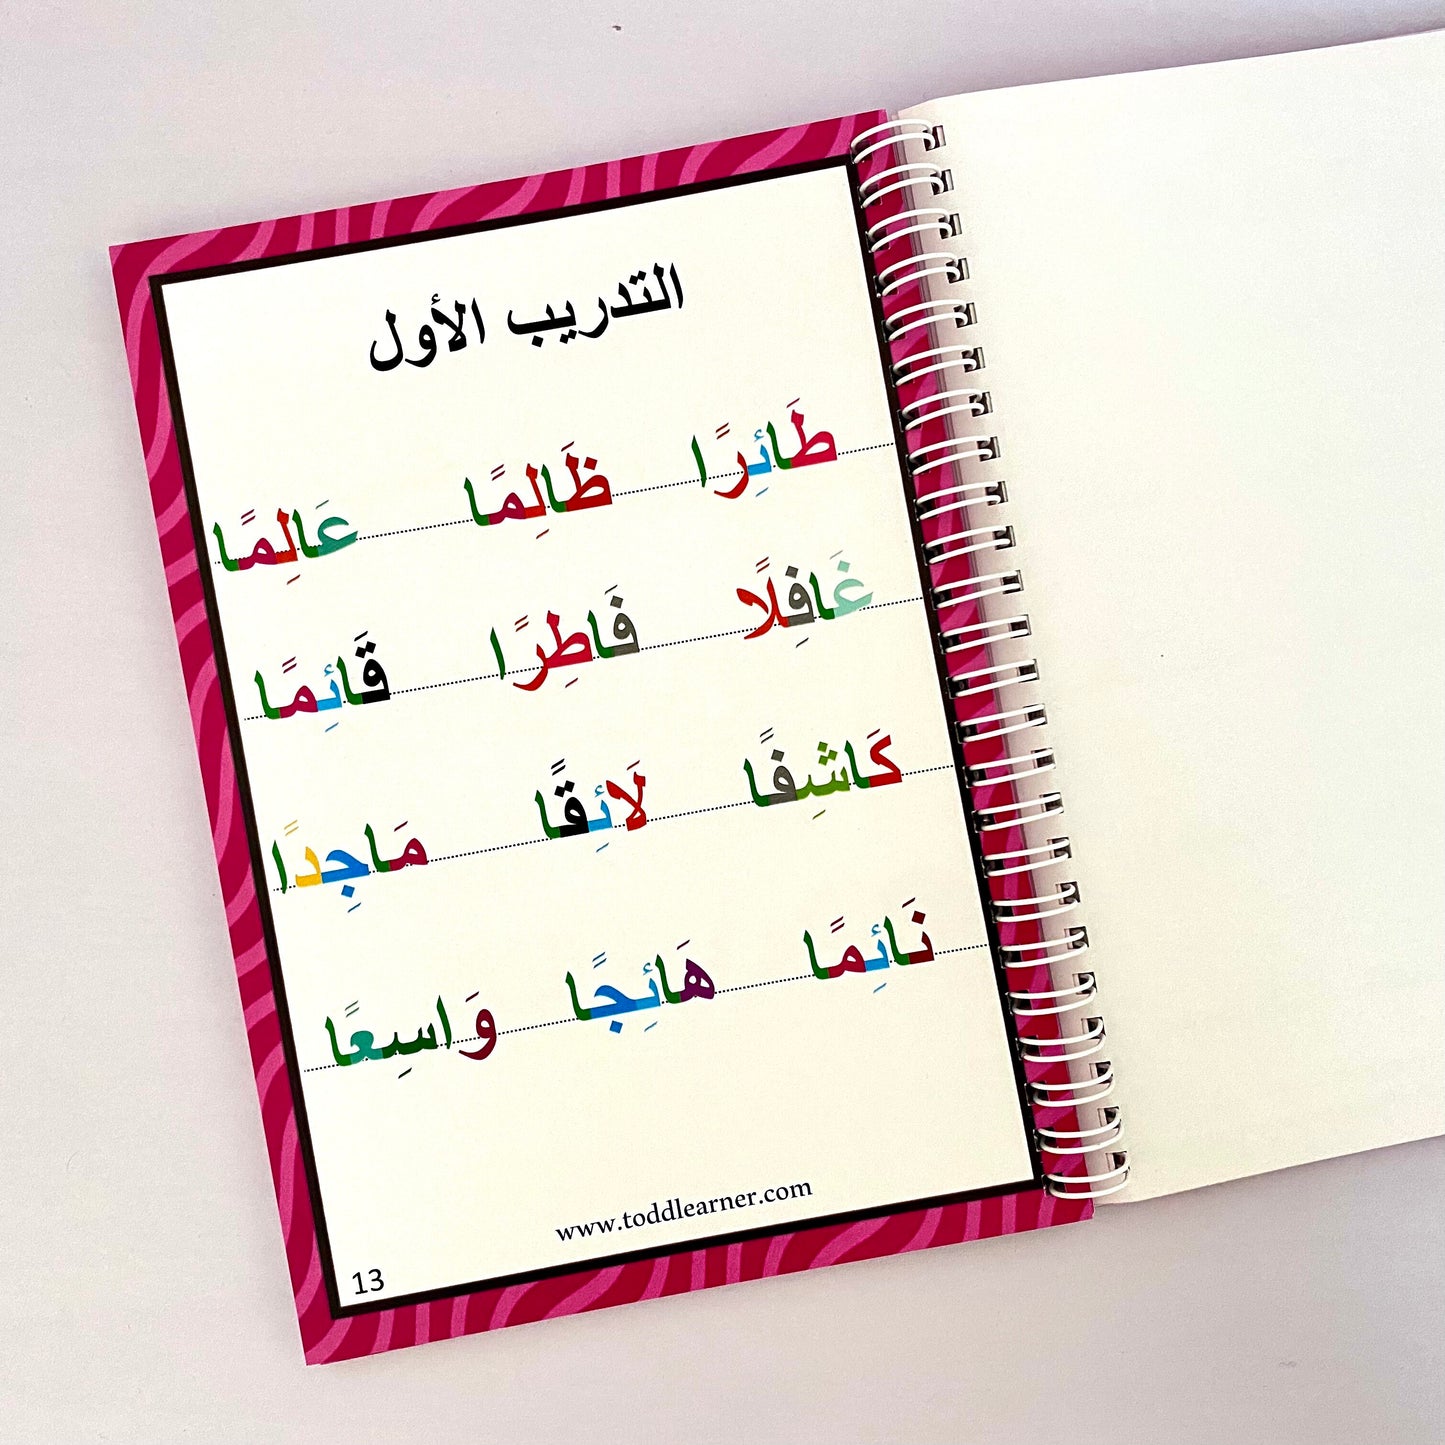 التدريب الأول
طَائِرًا ظَالِمًا عَالِمًا
غَافِلًا فَاطِرًا قَائِمًا
كَاشِفًا لَائِقًا مَاجِدًا
نَائِمًا هَائِجًا وَاسِعًا
www.toddlearner.com
13